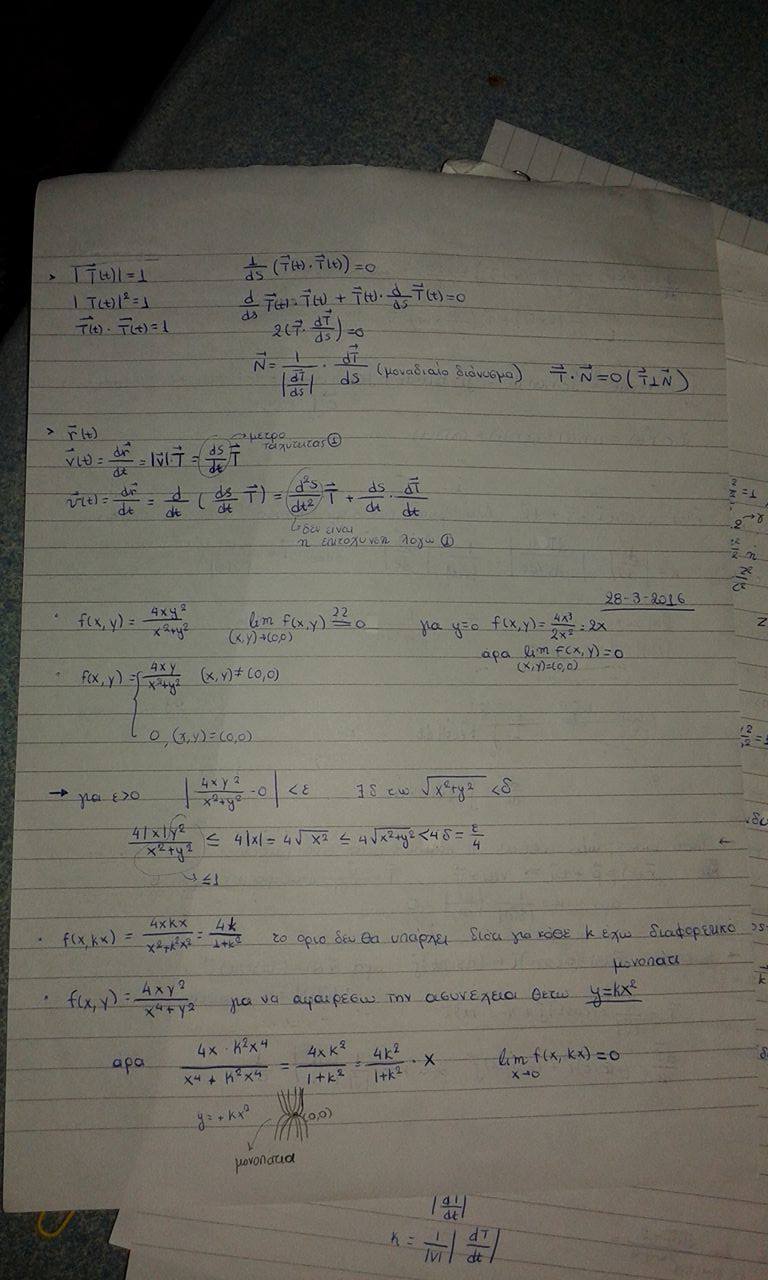 > |T⃗(t)| = 1    1/ds (T⃗(t)·T⃗(t)) = 0
|T(t)|² = 1    d/ds T⃗(t)·T⃗(t) + T⃗(t)·d/ds T⃗(t) = 0
T⃗(t)·T⃗(t) = 1    2(T⃗·dT⃗/ds) = 0
N⃗ = 1/|dT⃗/ds| · dT⃗/ds (μοναδιαίο διάνυσμα)    T⃗·N⃗ = 0 (T⃗⊥N⃗)
> r⃗(t)
→ μετρο
ταχυτητας ①
v⃗(t) = dr⃗/dt = |v⃗|·T⃗ = ds/dt T⃗
v⃗(t) = dr⃗/dt = d/dt (ds/dt T⃗) = d²s/dt² T⃗ + ds/dt · dT⃗/dt
↳ δεν ειναι
η επιταχυνση λογω ①
28-3-2016
· f(x,y) = 4xy²/x²+y²    lim f(x,y) = 0    για y=0 f(x,y) = 4x³/2x² = 2x
(x,y)→(0,0)
αρα lim f(x,y) = 0
(x,y)=(0,0)
· f(x,y) = { 4xy/x²+y²  (x,y)≠(0,0)
0, (x,y)=(0,0)
→ για ε>0    |4xy²/x²+y² - 0| < ε    ∃δ τω √x²+y² < δ
4|x|y²/x²+y² ≤ 4|x| = 4√x² ≤ 4√x²+y² < 4δ = ε/4
→ ≤1
· f(x,kx) = 4xkx/x²+k²x² = 4k/1+k²    το οριο δεν θα υπάρχει διοτι για κάθε k έχω διαφορετικο
μονοπατι
· f(x,y) = 4xy²/x⁴+y²    για να αφαιρέσω την ασυνέχεια θετω y=kx²
αρα    4x·k²x⁴/x⁴+k²x⁴ = 4xk²/1+k² = 4k²/1+k² · x    lim f(x,kx) = 0
x→0
y=+kx²    (0,0)
μονοπατια
|dT/dt|
κ = 1/|v| |dT/dt|